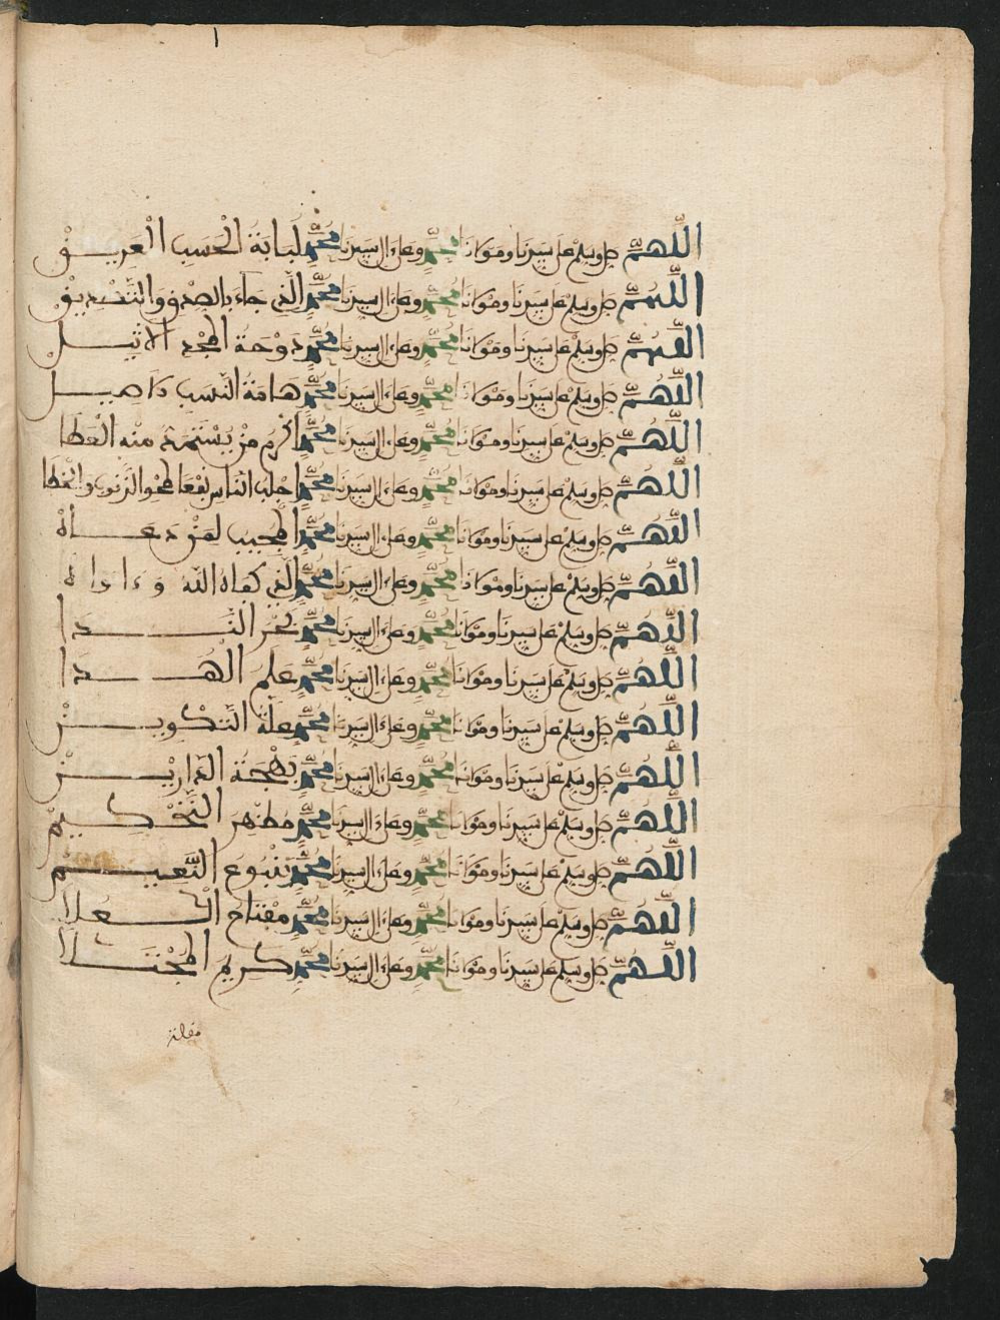 اللهم صل وسلم على سيدنا ومولانا محمد وعلى ءال سيدنا محمد لبابة الحسب العريق
اللهم صل وسلم على سيدنا ومولانا محمد وعلى ءال سيدنا محمد الذي جاء بالصدق والتصديق
اللهم صل وسلم على سيدنا ومولانا محمد وعلى ءال سيدنا محمد دوحة المجد الاثيل
اللهم صل وسلم على سيدنا ومولانا محمد وعلى ءال سيدنا محمد هامة النسب الاصيل
اللهم صل وسلم على سيدنا ومولانا محمد وعلى ءال سيدنا محمد اكرم من يستمد منه العطا
اللهم صل وسلم على سيدنا ومولانا محمد وعلى ءال سيدنا محمد اجلب الناس نفعا لمحو الذنوب والخطا
اللهم صل وسلم على سيدنا ومولانا محمد وعلى ءال سيدنا محمد المجيب لمن دعاه
اللهم صل وسلم على سيدنا ومولانا محمد وعلى ءال سيدنا محمد الذي كفاه الله وءاواه
اللهم صل وسلم على سيدنا ومولانا محمد وعلى ءال سيدنا محمد بحر الندا
اللهم صل وسلم على سيدنا ومولانا محمد وعلى ءال سيدنا محمد علم الهدا
اللهم صل وسلم على سيدنا ومولانا محمد وعلى ءال سيدنا محمد علة التكوين
اللهم صل وسلم على سيدنا ومولانا محمد وعلى ءال سيدنا محمد بهجة الدارين
اللهم صل وسلم على سيدنا ومولانا محمد وعلى ءال سيدنا محمد مظهر التحكيم
اللهم صل وسلم على سيدنا ومولانا محمد وعلى ءال سيدنا محمد ينبوع النعيم
اللهم صل وسلم على سيدنا ومولانا محمد وعلى ءال سيدنا محمد مفتاح العلا
اللهم صل وسلم على سيدنا ومولانا محمد وعلى ءال سيدنا محمد كريم المجتلا